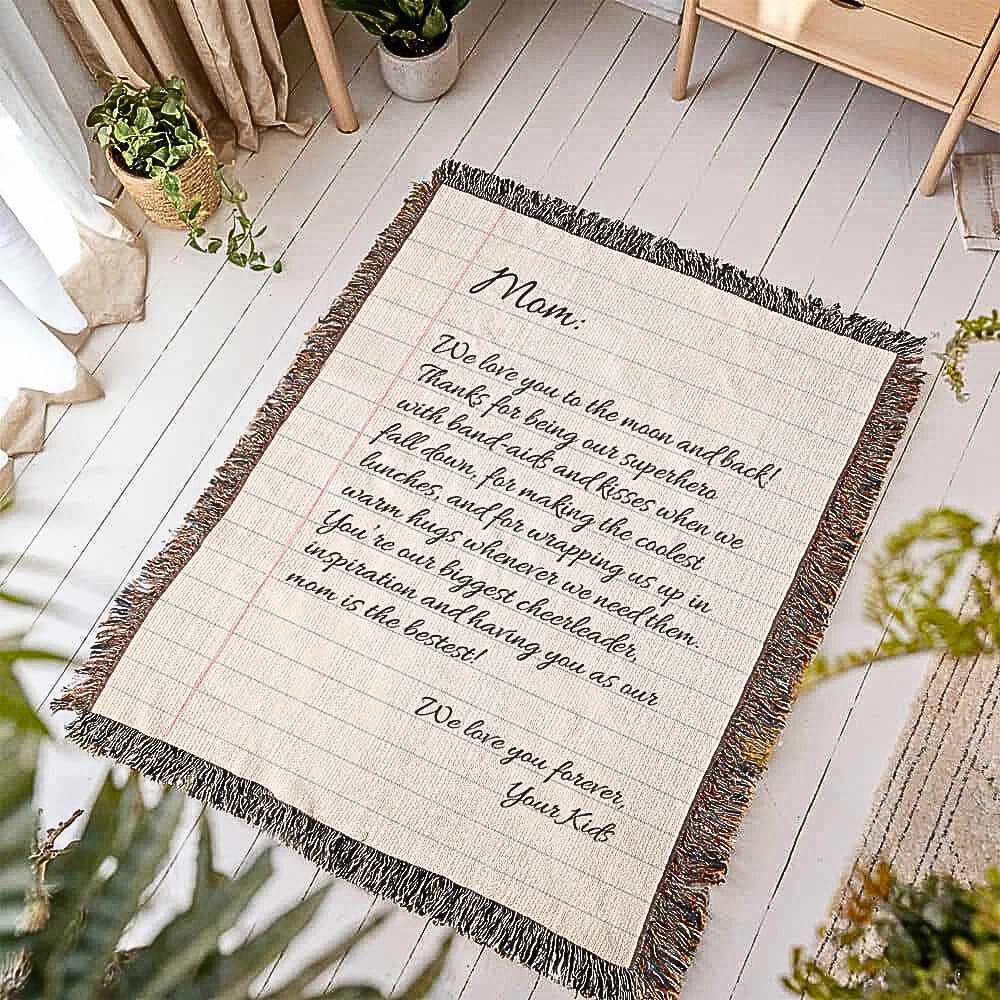 Mom:
We love you to the moon and back!
Thanks for being our superhero
with band-aids and kisses when we
fall down, for making the coolest
lunches, and for wrapping us up in
warm hugs whenever we need them.
You're our biggest cheerleader,
inspiration and having you as our
mom is the bestest!
We love you forever,
Your Kids